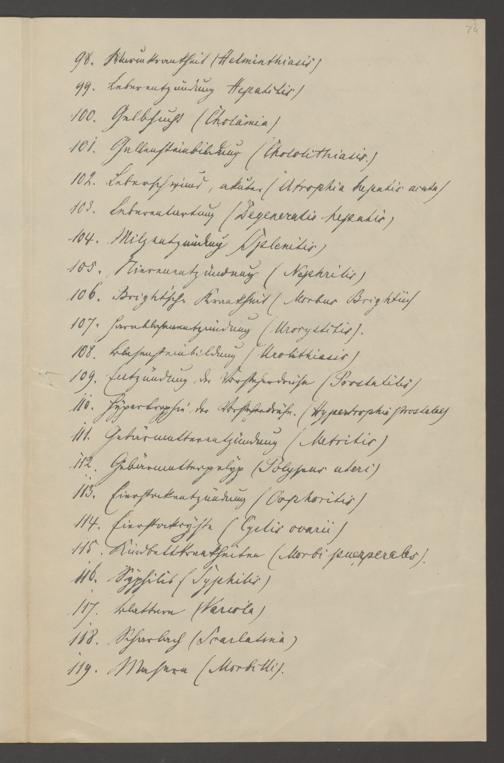 74
98. Wurmkrankheit (Helminthiasis)
99. Leberentzündung Hepatitis)
100. Gelbsucht (Cholämia)
101. Gallensteinbildung (Chololithiasis.)
102. Leberschwund, akuter (Atrophia hepatis acuta)
103. Leberentartung (Degeneratio hepatis)
104. Milzentzündung (Splenitis)
105. Nierenentzündung (Nephritis)
106. Bright'sche Krankheit (Morbus Brightii)
107. Harnblasenentzündung (Urocystitis).
108. Blasensteinbildung (Urolithiasis)
109. Entzündung der Vorsteherdrüse (Prostatitis)
110. Hypertrophie der Vorsteherdrüse. (Hypertrophia prostatae)
111. Gebärmutterentzündung (Metritis)
112. Gebärmutterpolyp (Polypus uteri)
113. Eierstockentzündung (Oophoritis)
114. Eierstockcyste (Cystis ovarii)
115. Kindbettkrankheiten (Morbi puerperales).
116. Syphilis (Syphilis)
117. Blattern (Variola)
118. Scharlach (Scarlatina)
119. Masern (Morbilli).